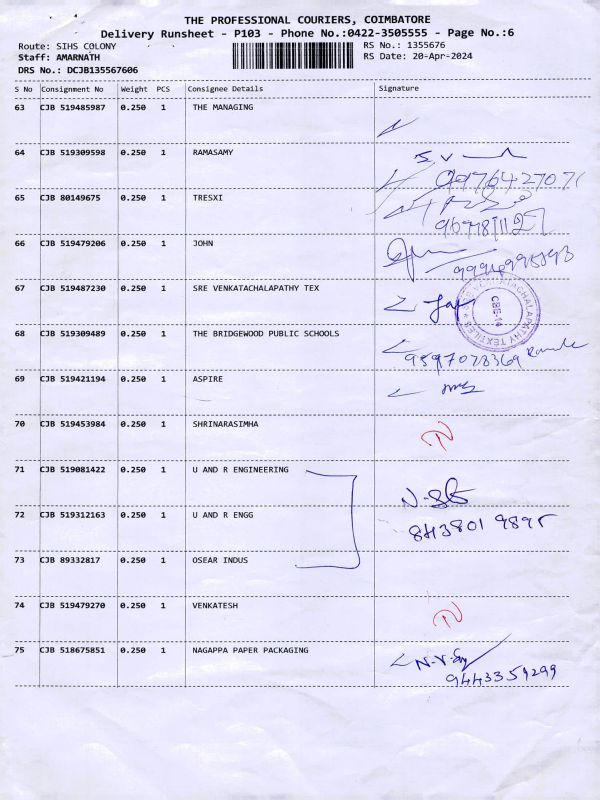 THE PROFESSIONAL COURIERS, COIMBATORE
Delivery Runsheet - P103 - Phone No.:0422-3505555 - Page No.:6
Route: SIHS COLONY RS No.: 1355676
Staff: AMARNATH RS Date: 20-Apr-2024
DRS No.: DCJB135567606
S No Consignment No Weight PCS Consignee Details Signature
63 CJB 519485987 0.250 1 THE MANAGING
64 CJB 519309598 0.250 1 RAMASAMY
65 CJB 80149675 0.250 1 TRESXI
66 CJB 519479206 0.250 1 JOHN
67 CJB 519487230 0.250 1 SRE VENKATACHALAPATHY TEX
CBE-14
68 CJB 519309489 0.250 1 THE BRIDGEWOOD PUBLIC SCHOOLS
9597028369
69 CJB 519421194 0.250 1 ASPIRE
70 CJB 519453984 0.250 1 SHRINARASIMHA
71 CJB 519081422 0.250 1 U AND R ENGINEERING
72 CJB 519312163 0.250 1 U AND R ENGG
8438019895
73 CJB 89332817 0.250 1 OSEAR INDUS
74 CJB 519479270 0.250 1 VENKATESH
75 CJB 518675851 0.250 1 NAGAPPA PAPER PACKAGING
9443351299